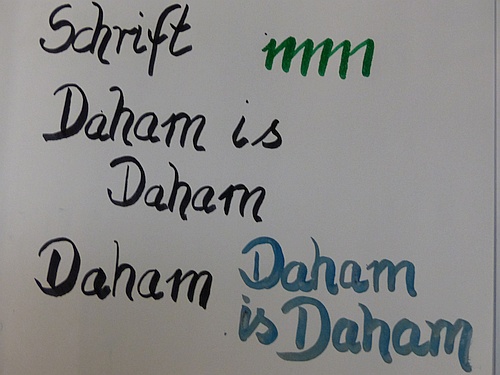 Schrift
mmm
Daham is
Daham
Daham
Daham
is Daham